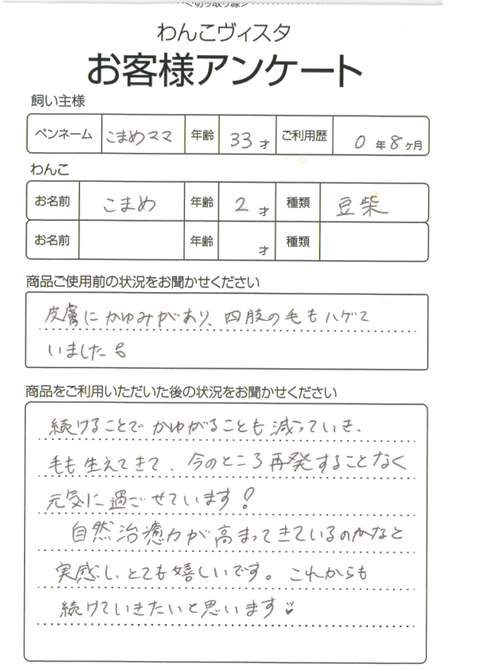 <切り取り線>
わんこヴィスタ
お客様アンケート
飼い主様
ペンネーム こまめママ 年齢 33 才 ご利用歴 0 年 8 ヶ月
わんこ
お名前 こまめ 年齢 2 才 種類 豆柴
お名前 年齢 才 種類
商品ご使用前の状況をお聞かせください
皮膚にかゆみがあり、四肢の毛もハゲて
いました。
商品をご利用いただいた後の状況をお聞かせください
続けることでかゆがることも減っていき、
毛も生えてきて、今のところ再発することなく
元気に過ごせています!
自然治癒力が高まってきているのかなと
実感し、とても嬉しいです。これからも
続けていきたいと思います